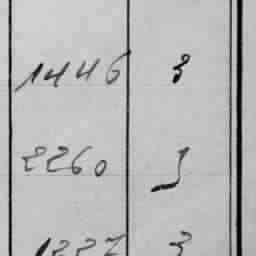 1446 3
2260 3
1227 3